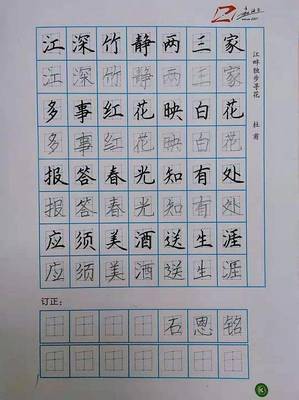 江深竹静两三家
江深竹静两三家
多事红花映白花
多事红花映白花
报答春光知有处
报答春光知有处
应须美酒送生涯
应须美酒送生涯
江畔独步寻花
杜甫
订正:
石恩铭